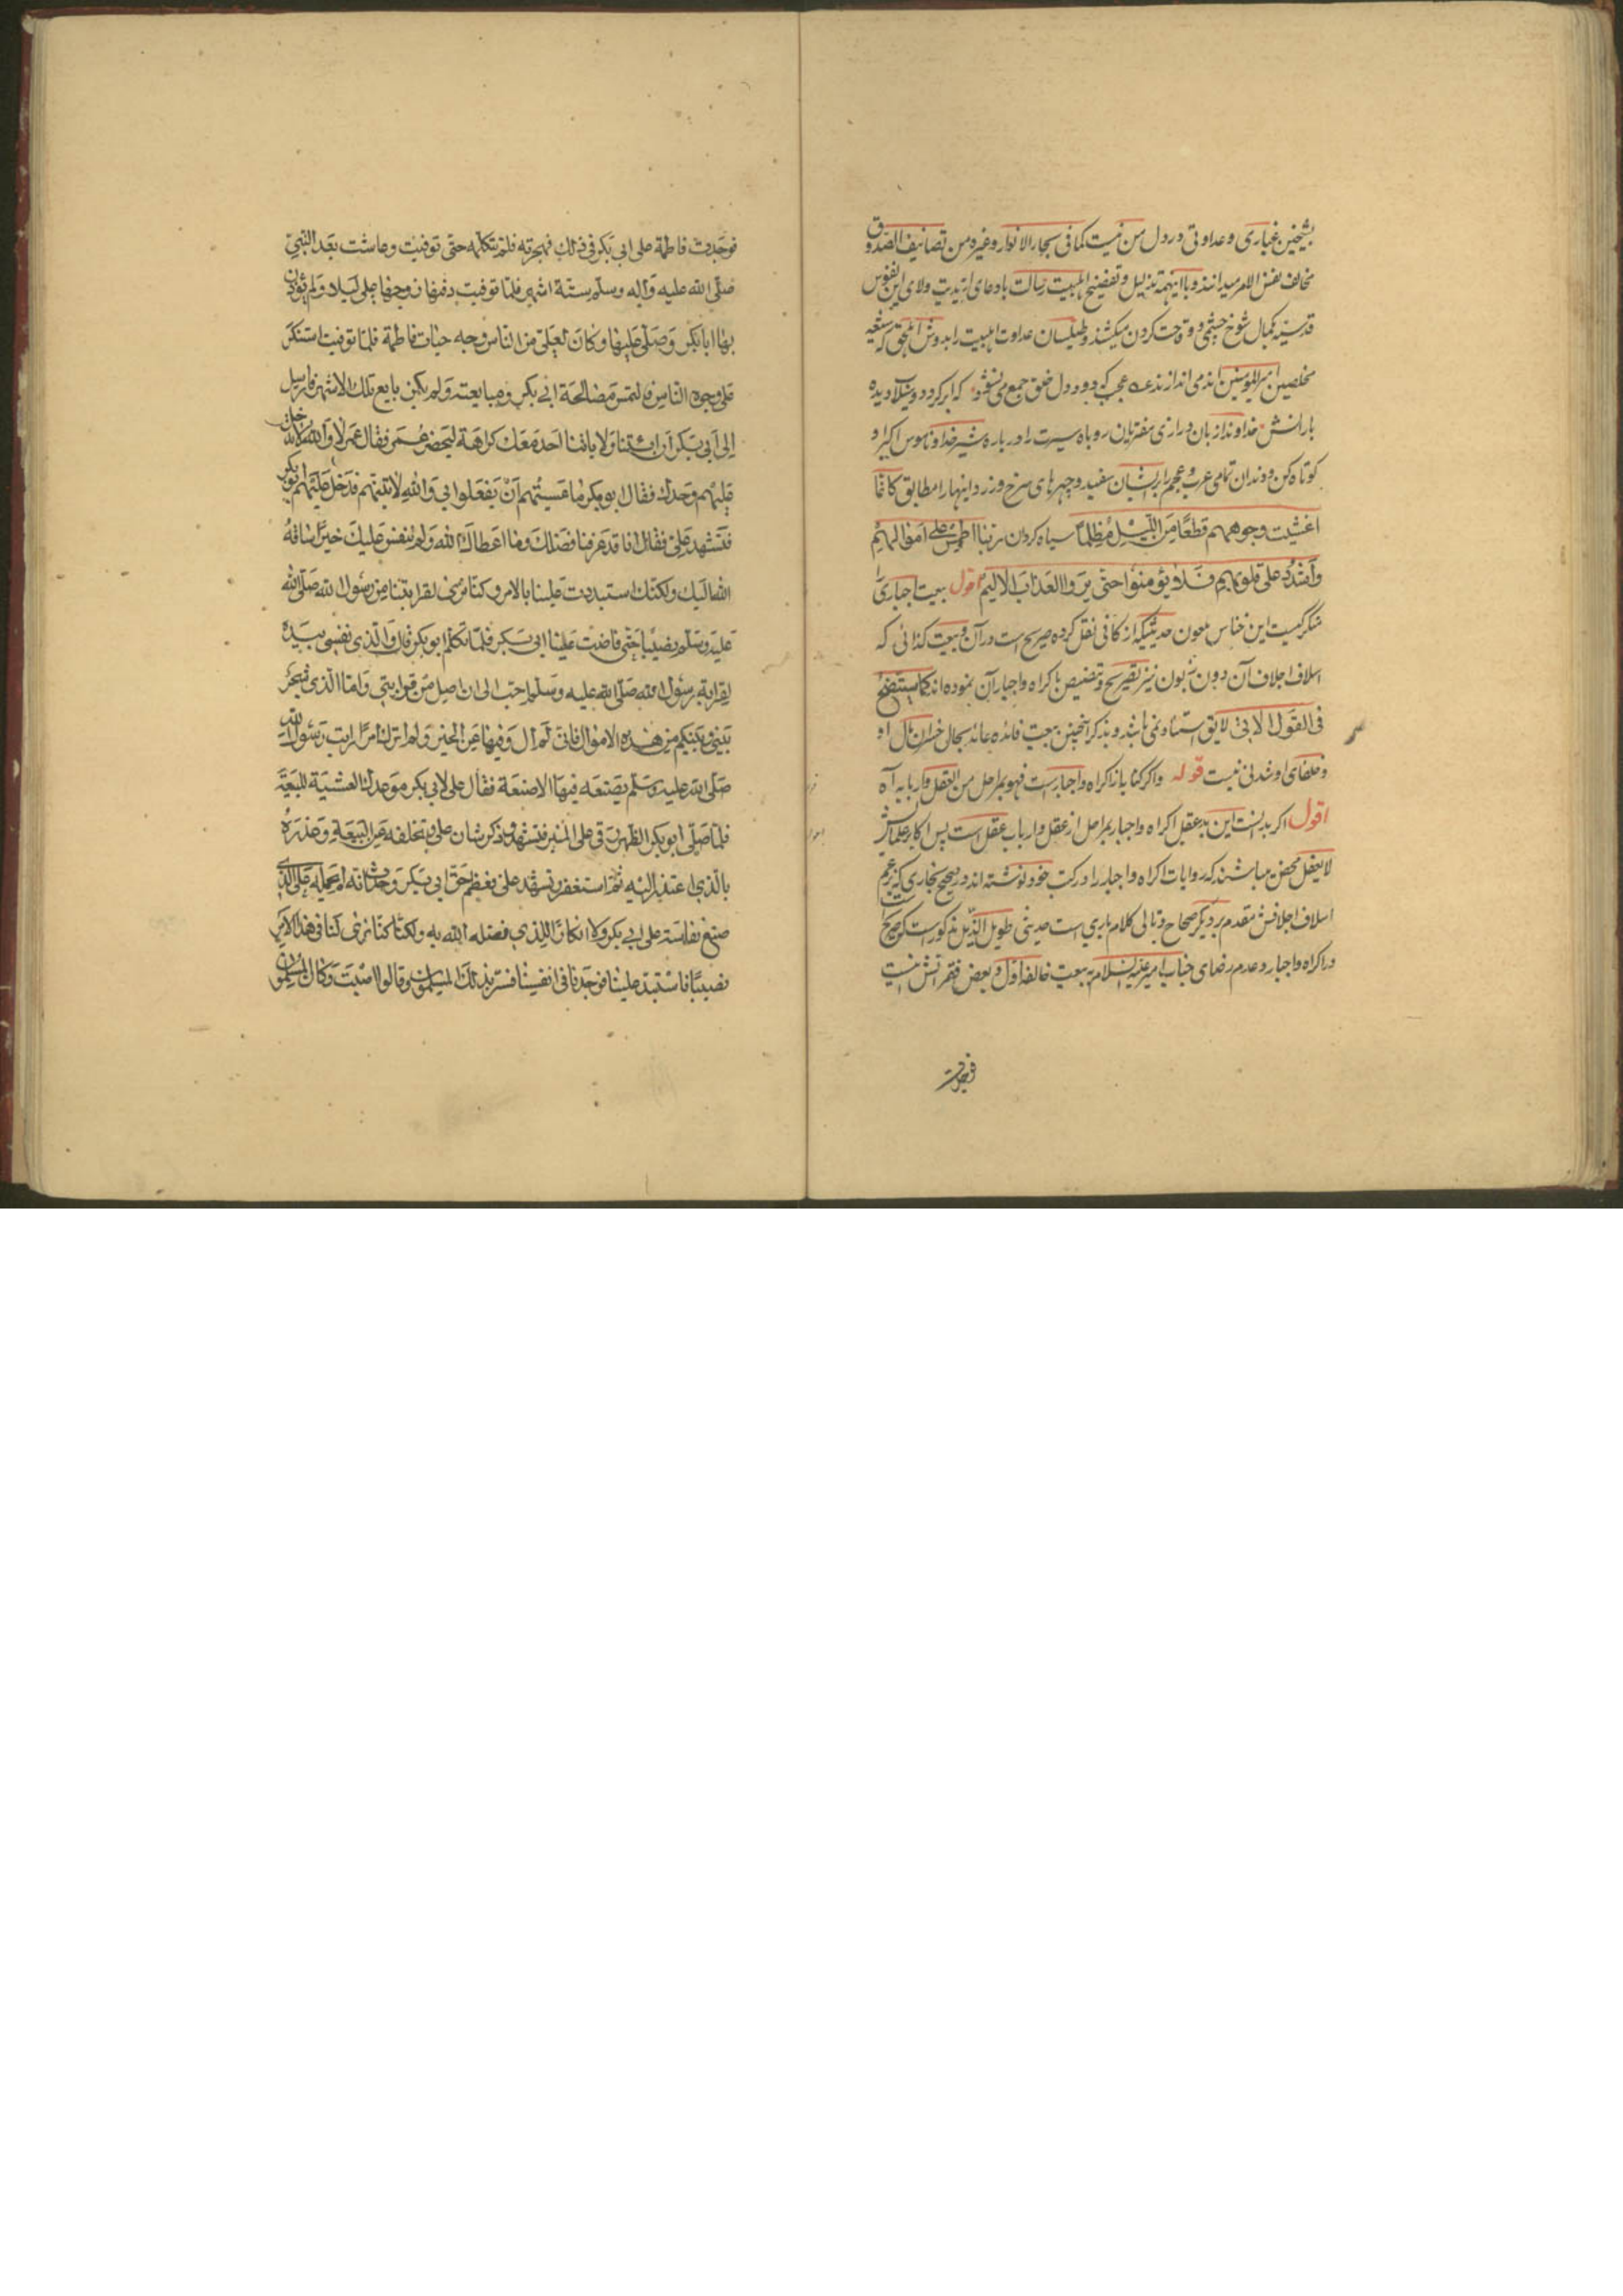 بشیخین غباری و عداوتی در دل من نیست کما فی بحار الانوار و غیره من تصانیف الصدوق
مخالف نفس الامر میدانند و با اینهمه تذلیل و تفضیح اهلبیت رسالت بادعای ولای این نفوس
قدسیه بکمال شوخ چشمی میکشند و طیلسان عداوت اهلبیت را بدوش
مخلصین امیرالمومنین اند می اندازند عجب که دود دل خلق جمع می نشود که ابر گردد و سیلاب دیده
بارانش خداوندا زبان درازی مفتریان روباه سیرت را درباره شیر خدا و ناموس اکبر او
کوتاه کن و دندان تمامی عرب و عجم بر ایشان سفید و چهرهای سرخ و زرد اینها را مطابق کانما
اغشیت وجوههم قطعا من اللیل مظلما سیاه کردان ربنا اطمس علی اموالهم
واشدد علی قلوبهم فلا یؤمنوا حتی یروا العذاب الالیم اقول بیعت اجباری
این خناس ملعون حدیثیکه از کافی نقل کرده صریح است در آن و بیعت کذائی که
اسلاف اجلاف آن دون زبون نیز تصریح و تنصیص باکراه و اجبار آن نموده اند کما سیتضح
فی القول الاتی لایق استناد نمی باشد و بذکر اینچنین بیعت فائده عائد بحال خسران مآل او
و خلفای او شدنی نیست قوله واکر کنایه از اکراه و اجبار است فهو بمراحل من العقل واربابه آه
اقول اکر بدانست این بدعقل اکراه و اجبار بمراحل از عقل و ارباب عقل است پس اکابر علمایش
لا یعقل محض میباشند که روایات اکراه و اجبار را در کتب خود نوشته اند در صحیح بخاری که بزعم
اسلاف اجلافش مقدم بر دیکر صحاح و تالی کلام باری است حدیثی طویل الذیل مذکور است که صریح
در اکراه و اجبار و عدم رضای جناب امیر علیه السلام به بیعت خالفه اول و بعض فقراتش اینست
فوجدت
فوجدت فاطمة علی ابی بکر فی ذلک فهجرته فلم تتکلمه حتی توفیت وعاشت بعد النبی
صلی الله علیه وآله وسلم ستة اشهر فلما توفیت دفنها زوجها علی لیلا ولم یؤذن
بها ابا بکر وصلی علیها وکان لعلی من الناس وجه حیات فاطمة فلما توفیت استنکر
علی وجوه الناس فالتمس مصالحة ابی بکر ومبایعته ولم یکن بایع تلک الاشهر فارسل
الی ابی بکر ان ائتنا ولا یاتنا احد معک کراهة لیحضر عمر فقال عمر لا والله لا تدخل
علیهم وحدک فقال ابو بکر ما عسیتهم ان یفعلوا بی والله لاتینهم فدخل علیهم ابو بکر
فتشهد علی فقال انا قد عرفنا فضلک وما اعطاک الله ولم ننفس علیک خیرا ساقه
الله الیک ولکنک استبددت علینا بالامر وکنا نری لقرابتنا من رسول الله صلی الله
علیه وسلم نصیبا حتی فاضت عینا ابی بکر فلما تکلم ابو بکر قال والذی نفسی بیده
لقرابة رسول الله صلی الله علیه وسلم احب الی ان اصل من قرابتی واما الذی شجر
بینی وبینکم من هذه الاموال فانی لم آل فیها عن الخیر ولم اترک امرا رایت رسول الله
صلی الله علیه وسلم یصنعه فیها الا صنعته فقال علی لابی بکر موعدک العشیة للبیعة
فلما صلی ابو بکر الظهر رقی علی المنبر فتشهد وذکر شان علی وتخلفه عن البیعة وعذره
بالذی اعتذر الیه ثم استغفر وتشهد علی فعظم حق ابی بکر وحدث انه لم یحمله علی الذی
صنع نفاسة علی ابی بکر ولا انکارا للذی فضله الله به ولکنا کنا نری لنا فی هذا الامر
نصیبا فاستبد علینا فوجدنا فی انفسنا فسر بذلک المسلمون وقالوا اصبت وکان المسلمون